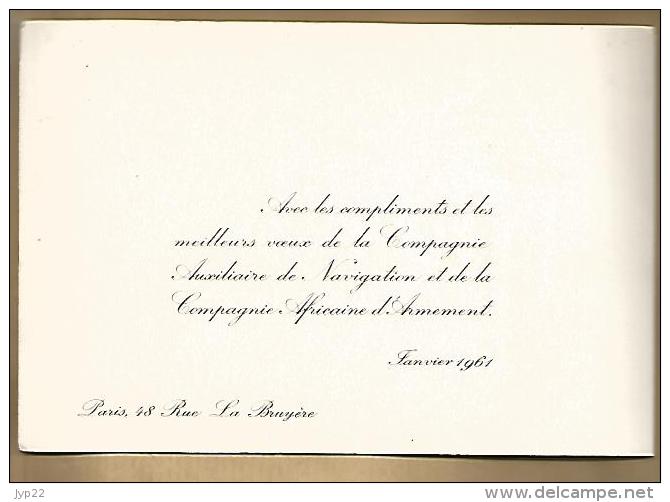 Avec les compliments et les
meilleurs vœux de la Compagnie
Auxiliaire de Navigation et de la
Compagnie Africaine d'Armement.
Janvier 1961
Paris, 48 Rue La Bruyère
jyp22
www.delcampe.net